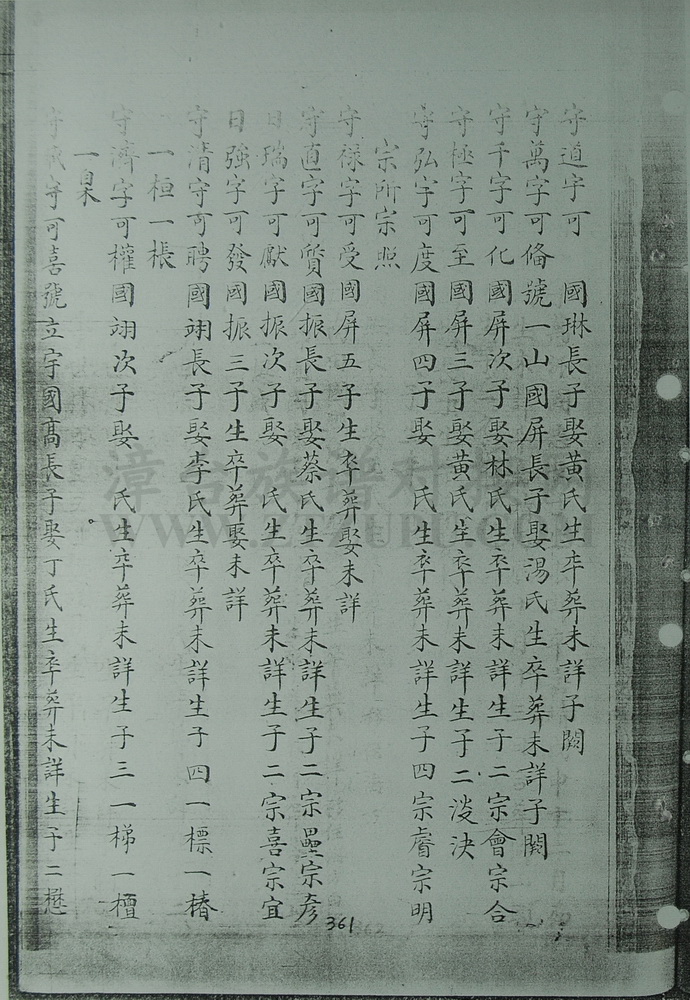 守道字可　國琳長子娶黃氏生卒葬未詳子闕
守萬字可偹號一山國屏長子娶湯氏生卒葬未詳子闕
守千字可化國屏次子娶林氏生卒葬未詳生子二宗會宗合
守極字可至國屏三子娶黃氏生卒葬未詳生子二浚決
守弘字可度國屏四子娶　氏生卒葬未詳生子四宗睿宗明
宗所宗照
守祿字可受國屏五子生卒葬娶未詳
守直字可質國振長子娶蔡氏生卒葬未詳生子二宗壘宗彥
日瑞字可獻國振次子娶　氏生卒葬未詳生子二宗喜宗宜
日強字可發國振三子生卒葬娶未詳
守清字可聘國翊長子娶李氏生卒葬未詳生子四一標一椿
一桓一棖
守濟字可權國翊次子娶　氏生卒葬未詳生子三一梯一檀
一臬
守字可喜號立宇國高長子娶丁氏生卒葬未詳生子二懋
361
漳台族谱对接网